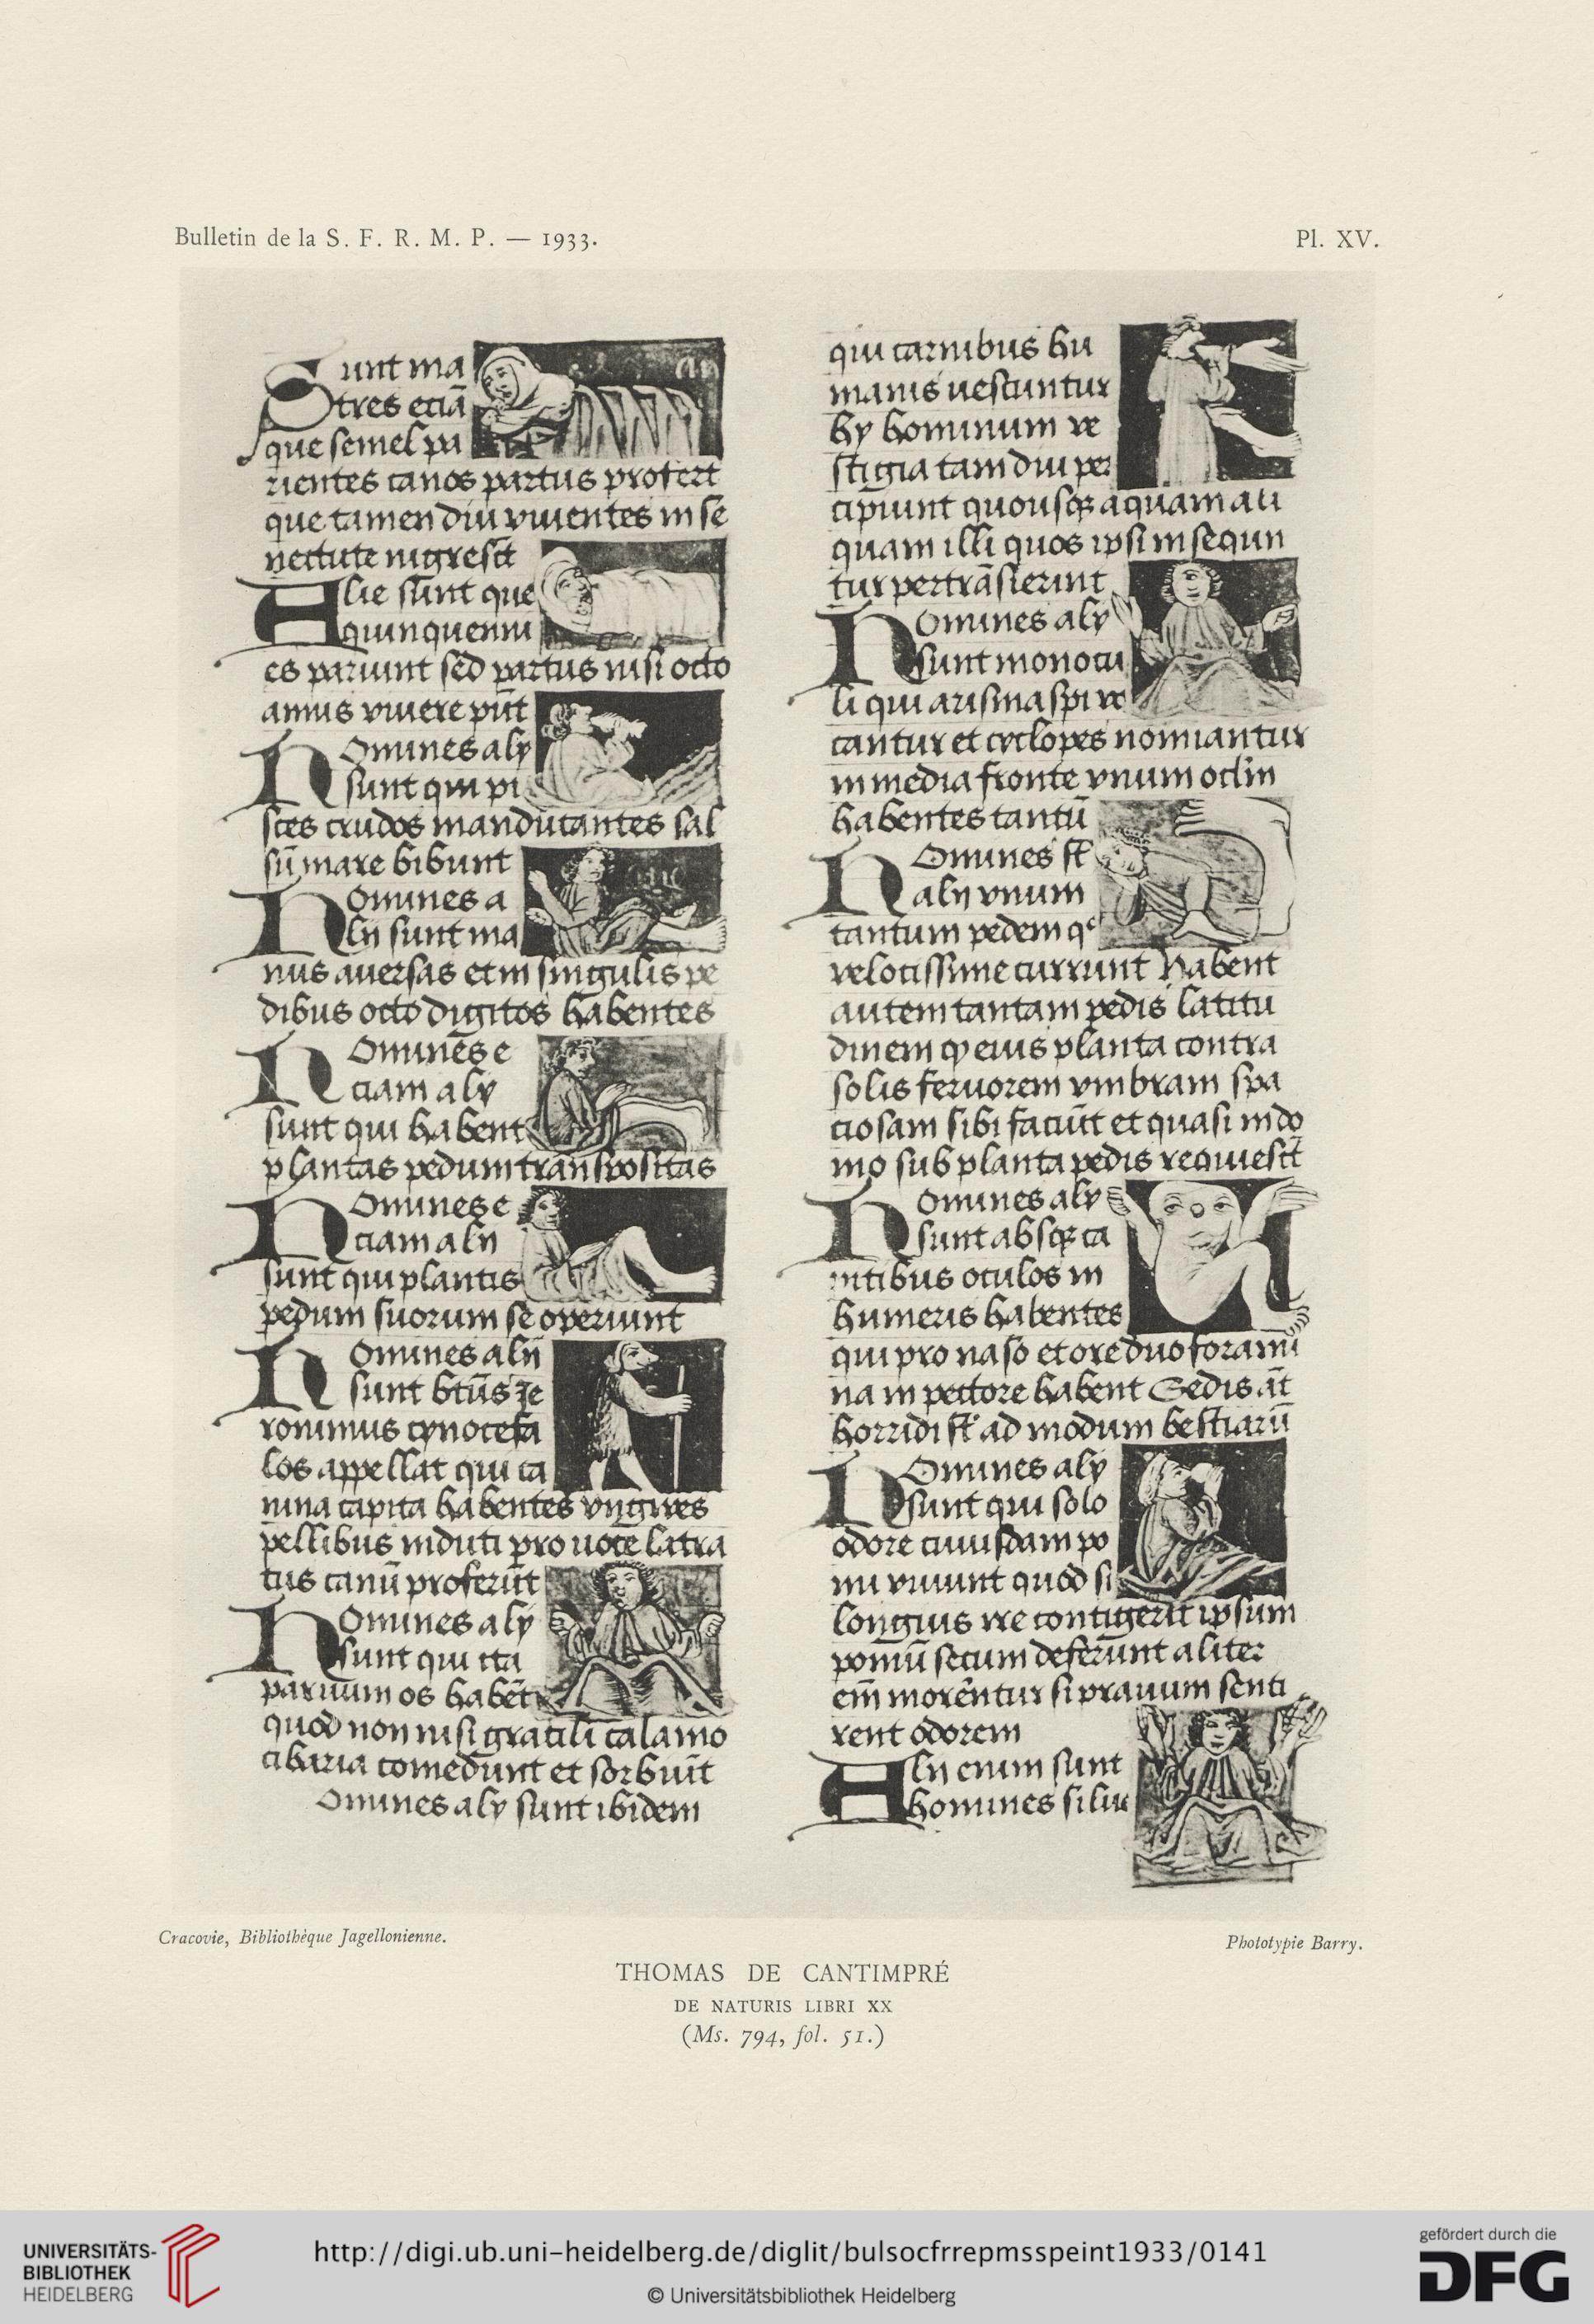 Bulletin de la S. F. R. M. P. — 1933.
Pl. XV.
Sunt ma
tres eciā
que semel pa
rientes canos partus profert
que tamen diu viuentes in se
nectute nigrescūt
Alie sunt que
quinquenni
es pariunt sed partus nisi octo
annis viuere pūt
Homines aly
sunt qui pi
sces crudos manducantes sal
sū mare bibunt
Homines a
lij sunt ma
nus auersas et in singulis pe
dibus octo digitos habentes
Homines e
ciam aly
sunt qui habent
plantas pedum transpositas
Homines e
ciam alij
sunt qui plantis
pedum suorum se operiunt
Homines alij
sunt btūs Je
ronimus cynocefa
los appellat qui ca
nina capita habentes vngues
pellibus induti pro uoce latra
tus canū proferūt
Homines aly
sunt qui ita
paruum os habēt
quod non nisi gracili calamo
cibaria comedunt et sorbuīt
Omines aly sunt ibidem
qui carnibus hu
manis uescuntur
hy hominum ve
stigia tam diu per
cipiunt quousqꝫ aquam ali
quam illi quos ipsi insequn
tur pertrāsierint
Homines aly
sunt monocu
li qui arismaspi vo
cantur et cyclopes nominantur
in media fronte vnum oclm
habentes tantū
Homines st̄
alij vnum
tantum pedem qͥ
velocissime currunt Habent
autem tantam pedis latitu
dinem qꝫ eius planta contra
solis feruorem vmbram spa
ciosam sibi faciūt et quasi in do
mo sub planta pedis requiescūt
Homines aly
sunt absqꝫ ca
pitibus oculos in
humeris habentes
qui pro naso et ore duo forami
na in pectore habent Sedis āt
horridi st̄ ad modum bestiarū
Homines aly
sunt qui solo
odore cuiusdam po
mi viuunt quod si
longius ire contigerit ipsum
pomū secum deferūnt aliter
em̄ morēntur si prauum senti
rent odorem
Alij enim sunt
homines silue
Cracovie, Bibliothèque Jagellonienne.
Phototypie Barry.
THOMAS DE CANTIMPRÉ
DE NATURIS LIBRI XX
(Ms. 794, fol. 51.)
UNIVERSITÄTS-
BIBLIOTHEK
HEIDELBERG
http://digi.ub.uni-heidelberg.de/diglit/bulsocfrrepmsspeint1933/0141
© Universitätsbibliothek Heidelberg
gefördert durch die
DFG